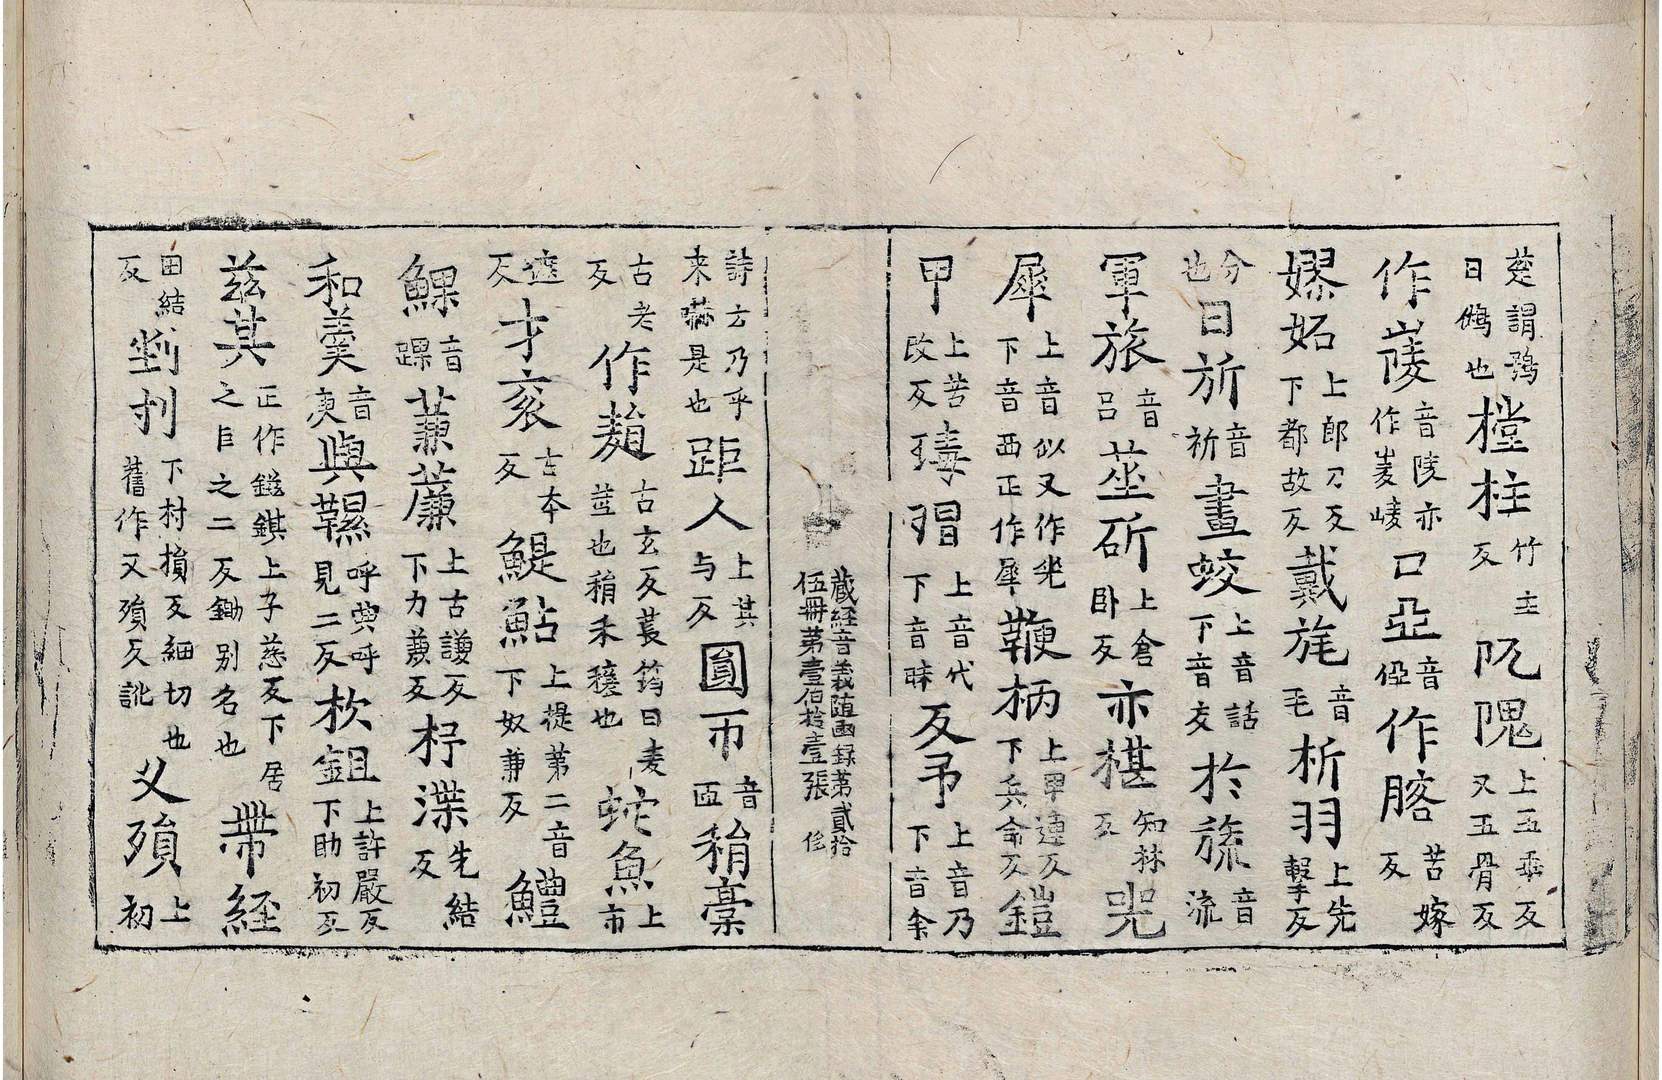 楚謂鵶曰鵂也樘柱竹主反阢隗上五乖反又五骨反
作崚音陵亦作崚口亞音俹作䯊苦嫁反
嫪妬上郎刀反下都故反戴旄音毛析羽上先擊反
分也曰旂音祈畫蛟上音話下音交於旒音流
軍旅音呂莝斫上倉卧反亦椹知林反兕
犀上音似又作兕下音西正作犀鞭柄上甲連反下兵命反鎧
甲上苦改反瑇瑁上音代下音昧反弔上音乃下音
藏經音義隨函錄第貳拾伍冊第壹伯拾壹張
詩云乃乎来嚇是也距人上其与反圓帀音匝稍稾
古老反作䴷古玄反蛇魚上市
遮反才衮古本反鯷鮎上提第二音下奴兼反鱧
鯶音踝蒹薕上古謙反下力兼反杼渫先結反
和羹音庚與韅呼典呼見二反杴鉏上許嚴反下助初反
兹其正作鎡錤上子慈反下居之巨之二反鋤別名也帶経
田結反剉刌下村損反細切也舊作又殰反訛乂殰上初